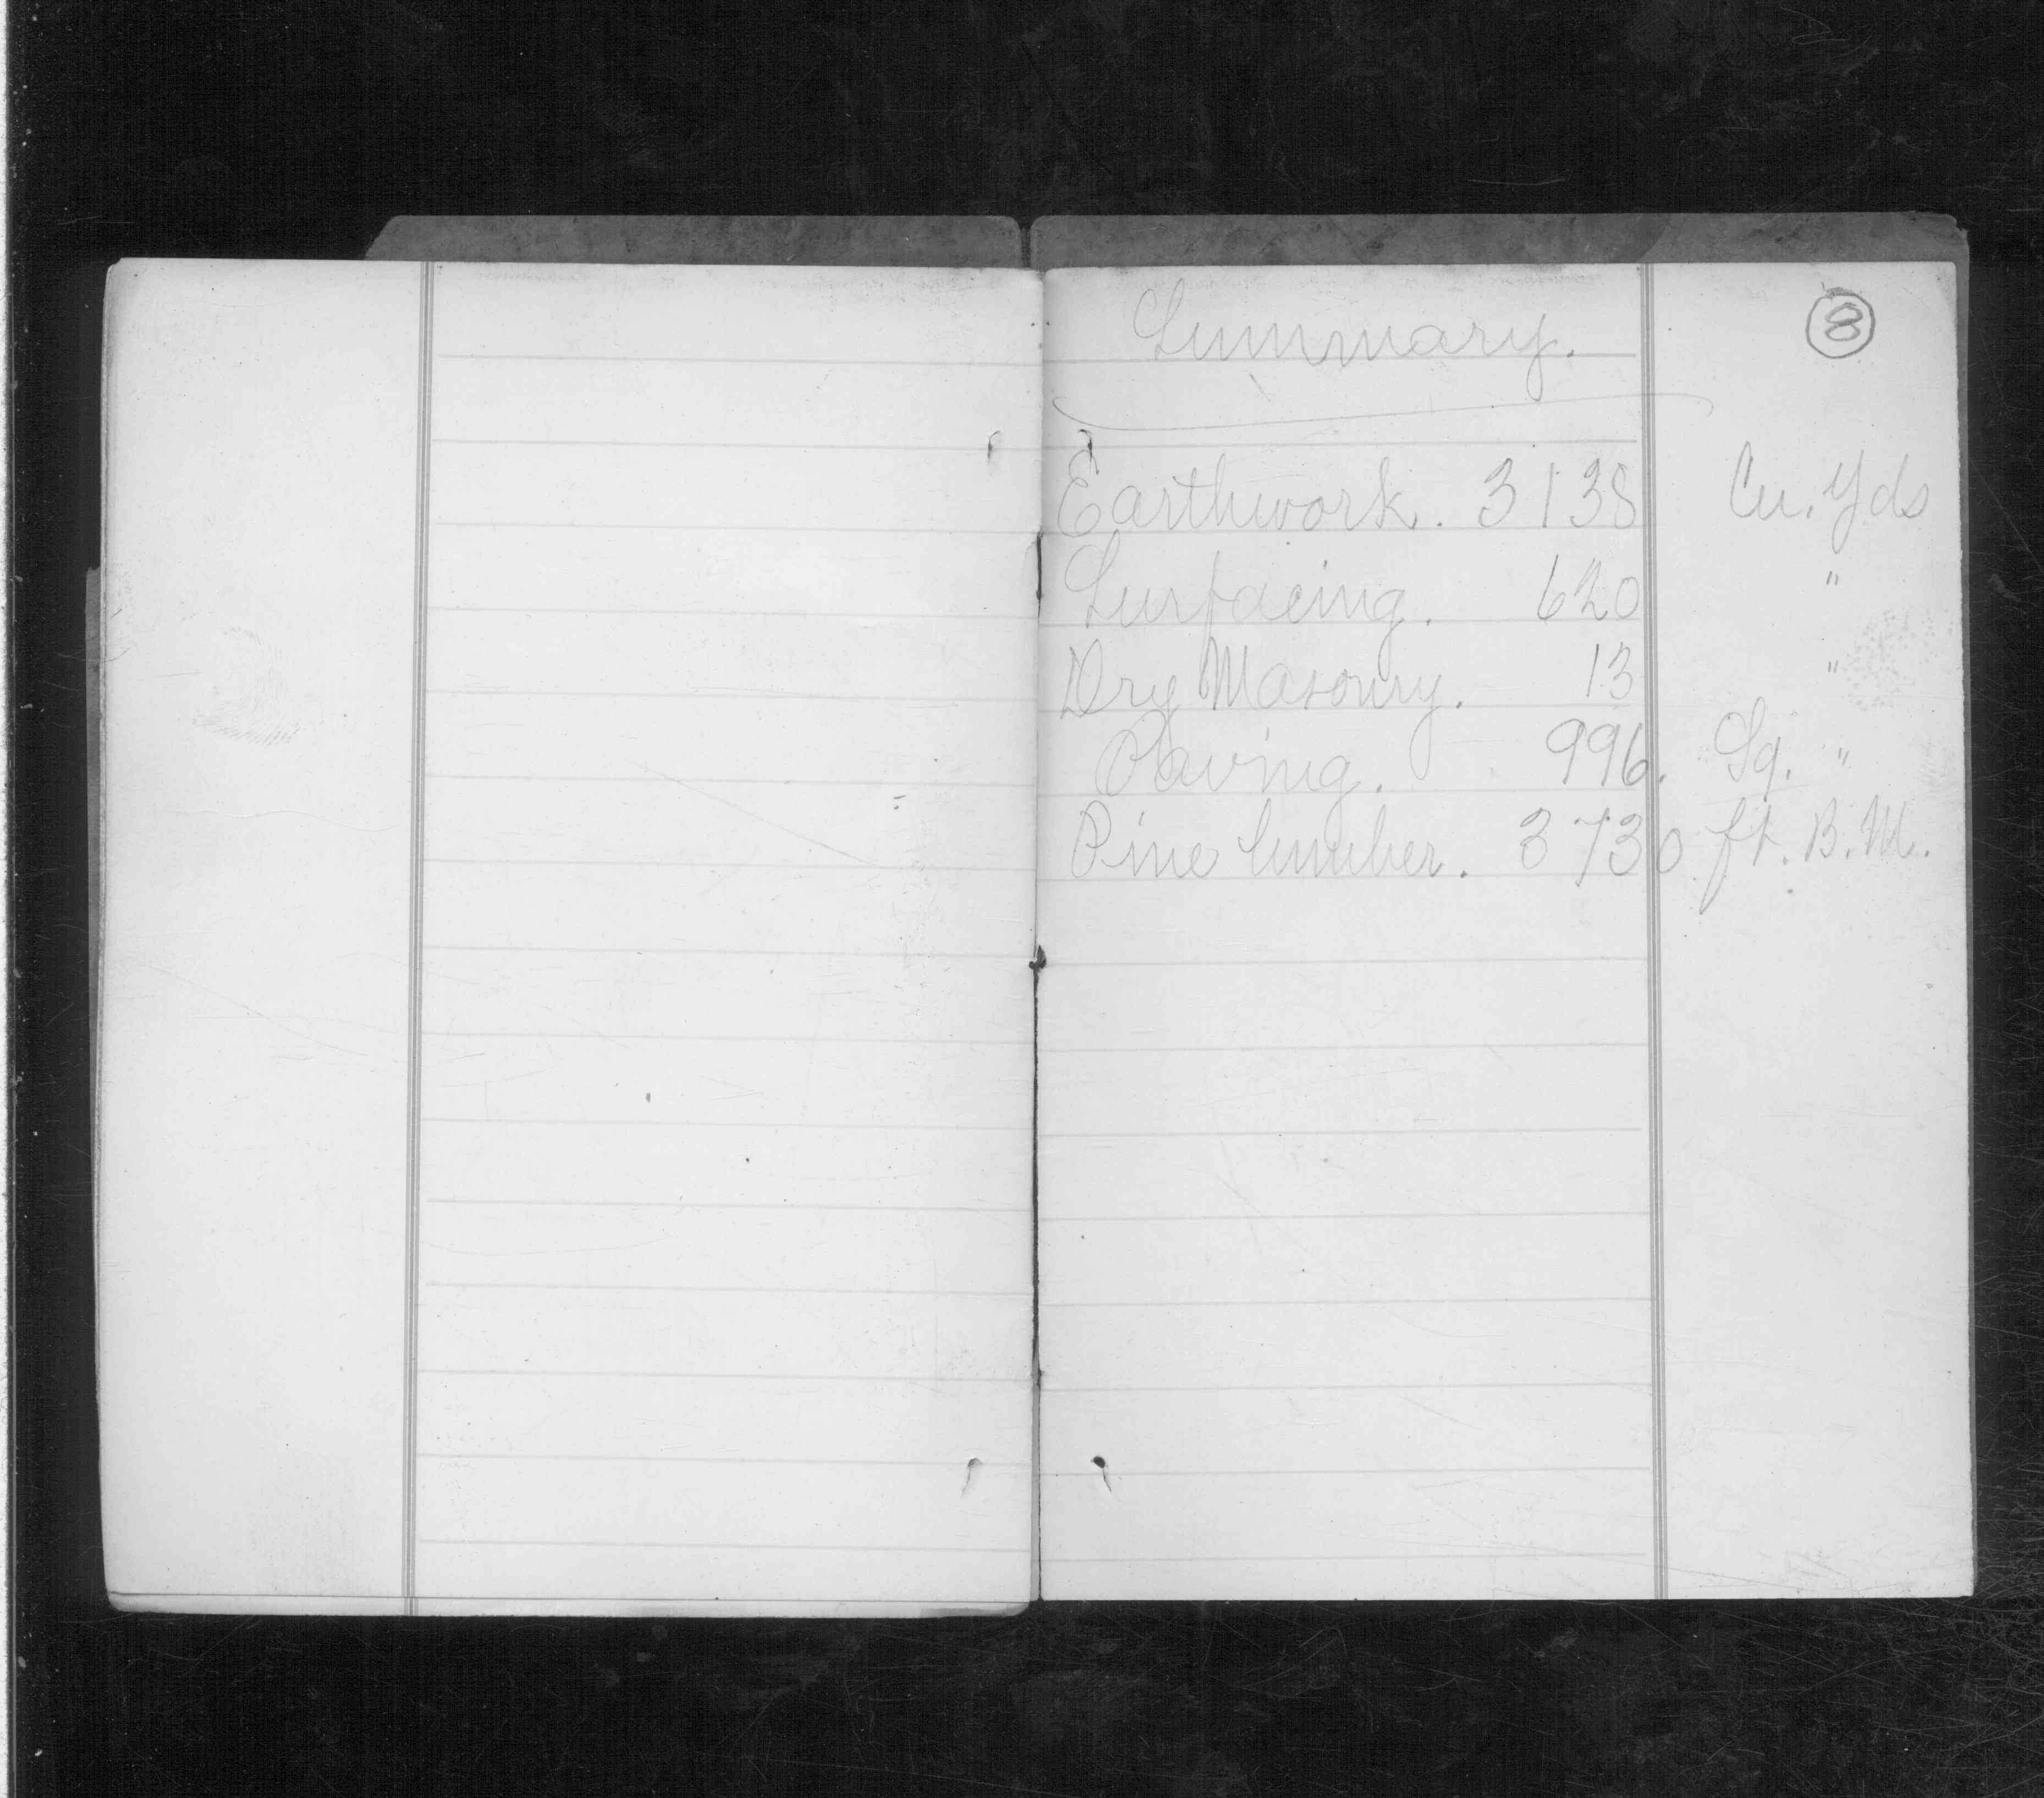 Summary.
8
Earthwork. 3138 Cu. Yds
Surfacing. 620 "
Dry Masonry. 13 "
Paving. 996. Sq. "
Pine lumber. 3730 ft. B.M.